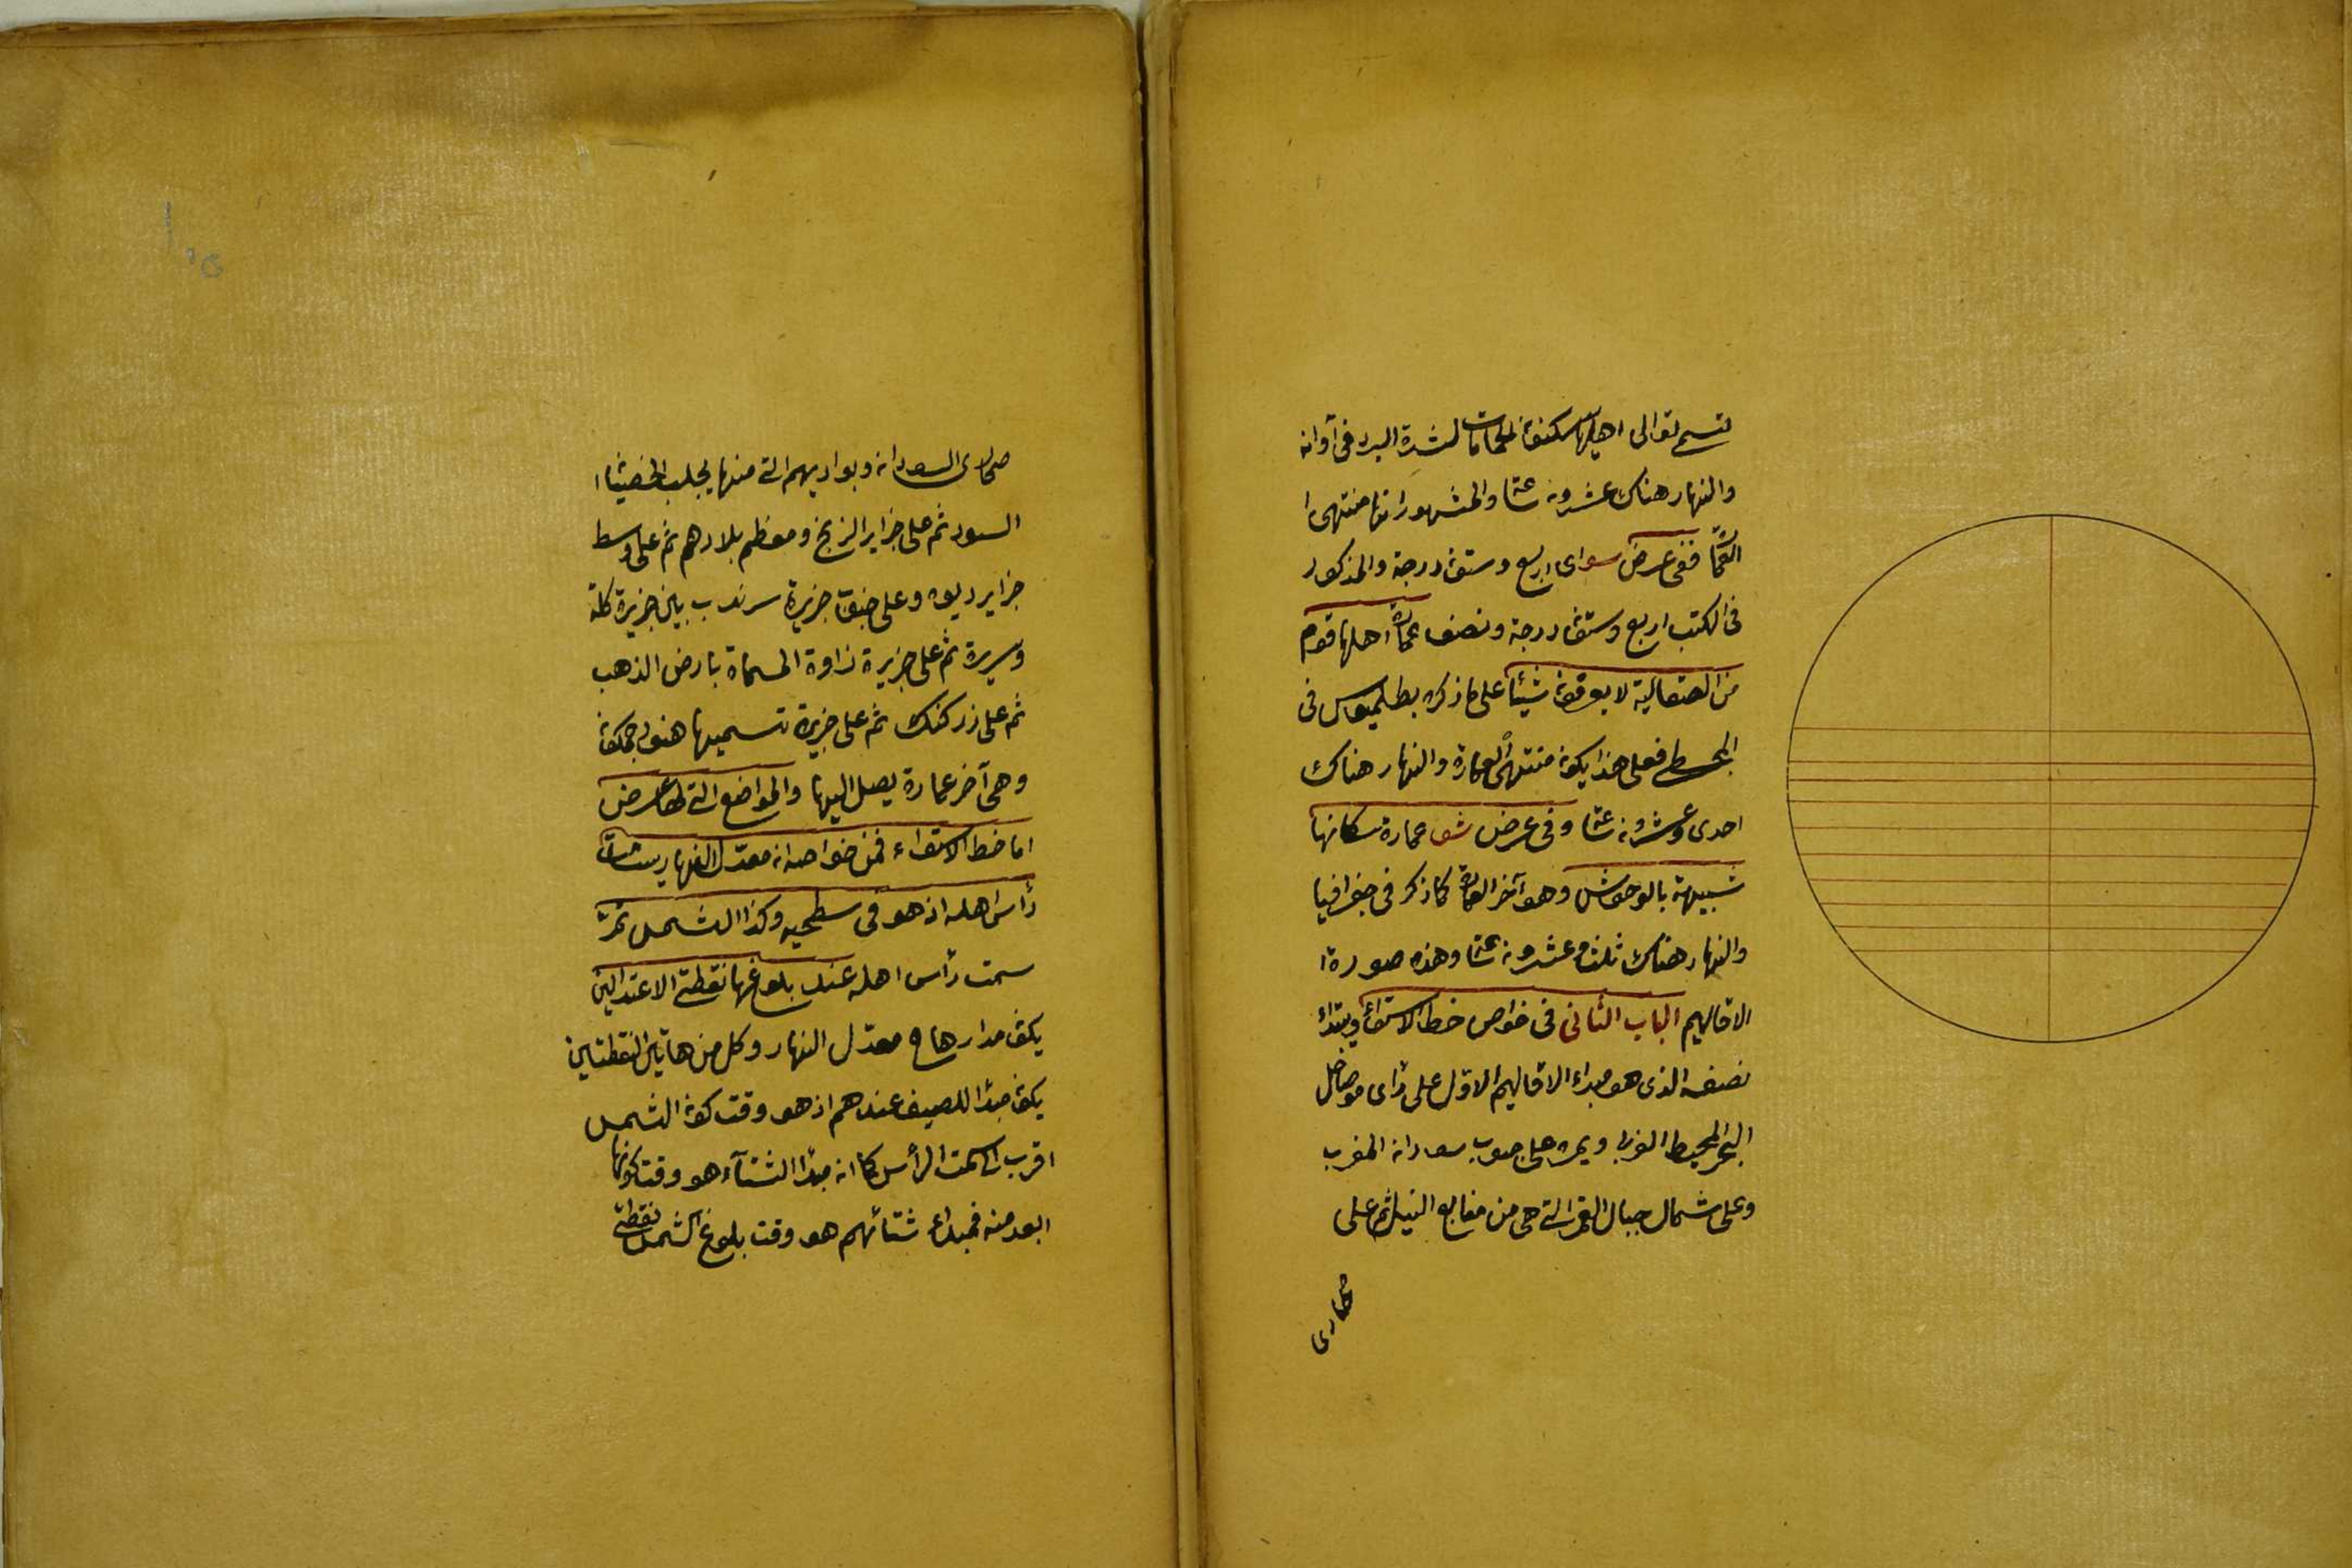 تسمى تولى اهلها يسكنون الحمامات لشدة البرد في آوانه
والنهار هناك عشرون ساعة والمشهور انها منتهى ا
العمارة ففي عرض سواى اربع وستون درجة والمذكور
في الكتب اربع وستون درجة ونصف عمارة اهلها قوم
من الصقالبة لا يعرفون شيئا على ما ذكره بطلميوس في
المجسطي فعلى هذا يكون منتهى العمارة والنهار هناك
احدى وعشرون ساعة وفي عرض عمارة سكانها
شبيهة بالوحوش وهو آخر العمارة كما ذكر في جغرافيا
والنهار هناك ثلث وعشرون ساعة وهذه صورة ا
الاقاليم الباب الثاني في خواص خط الاستواء ويبتدئ
نصفه الذى هو مبداء الاقاليم الاول على راى من
البحر المحيط الغربي ويمر على جنوب سودان المغرب
وعلى شمال جبال القمر التي هي من منابع النيل ثم على
صحارى
صحارى السودان وبواديهم التي منها يجلب الخصيان ا
السود ثم على جزاير الزنج ومعظم بلادهم ثم على وسط
جزاير ديوه وعلى جنوب جزيرة سرنديب بين جزيرة كله
وسريرة ثم على جزيرة المسماة بارض الذهب
ثم على كنك ثم على جزيرة تسميها هنود جمكوت
وهي آخر عمارة يصل اليها والمواضع التي لها عرض
اما خط الاستواء فمن خواصه ان معدل النهار يسامت
رأس اهله اذ هو في سطحه وكذا الشمس تمر
سمت رأس اهله عند بلوغها نقطتي الاعتدالين
يكون مدارها ح معدل النهار وكل من هاتين النقطتين
يكون مبدأ للصيف عندهم اذ هو وقت كون الشمس
اقرب الى سمت الرأس كما ان مبدأ الشتآء هو وقت كونها
ابعد منه فمبداء شتائهم هو وقت بلوغ الشمس نقطتي